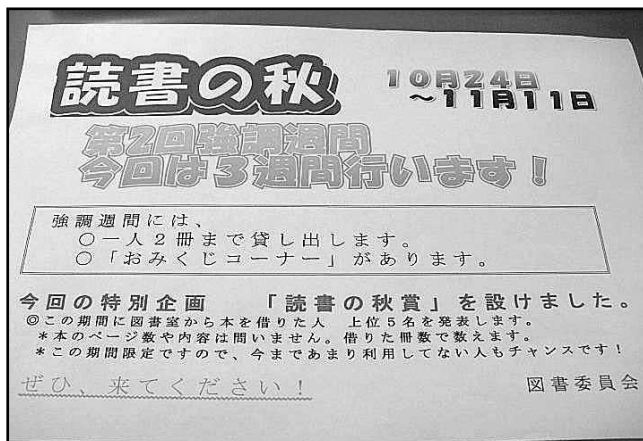 読書の秋
10月24日
～11月11日
第2回強調週間
今回は3週間行います！
強調週間には、
○一人2冊まで貸し出します。
○「おみくじコーナー」があります。
今回の特別企画　「読書の秋賞」を設けました。
◎この期間に図書室から本を借りた人　上位5名を発表します。
＊本のページ数や内容は問いません。借りた冊数で数えます。
＊この期間限定ですので、今まであまり利用してない人もチャンスです！
ぜひ、来てください！
図書委員会